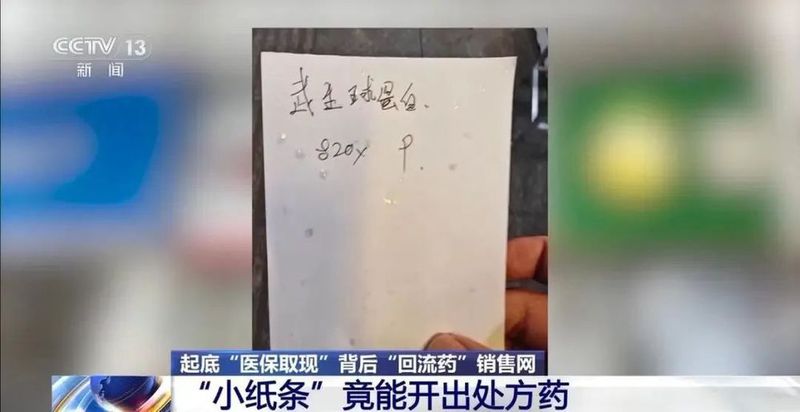 CCTV 13
新闻
武王球蛋白.
820x 9.
起底“医保取现”背后“回流药”销售网
“小纸条”竟能开出处方药